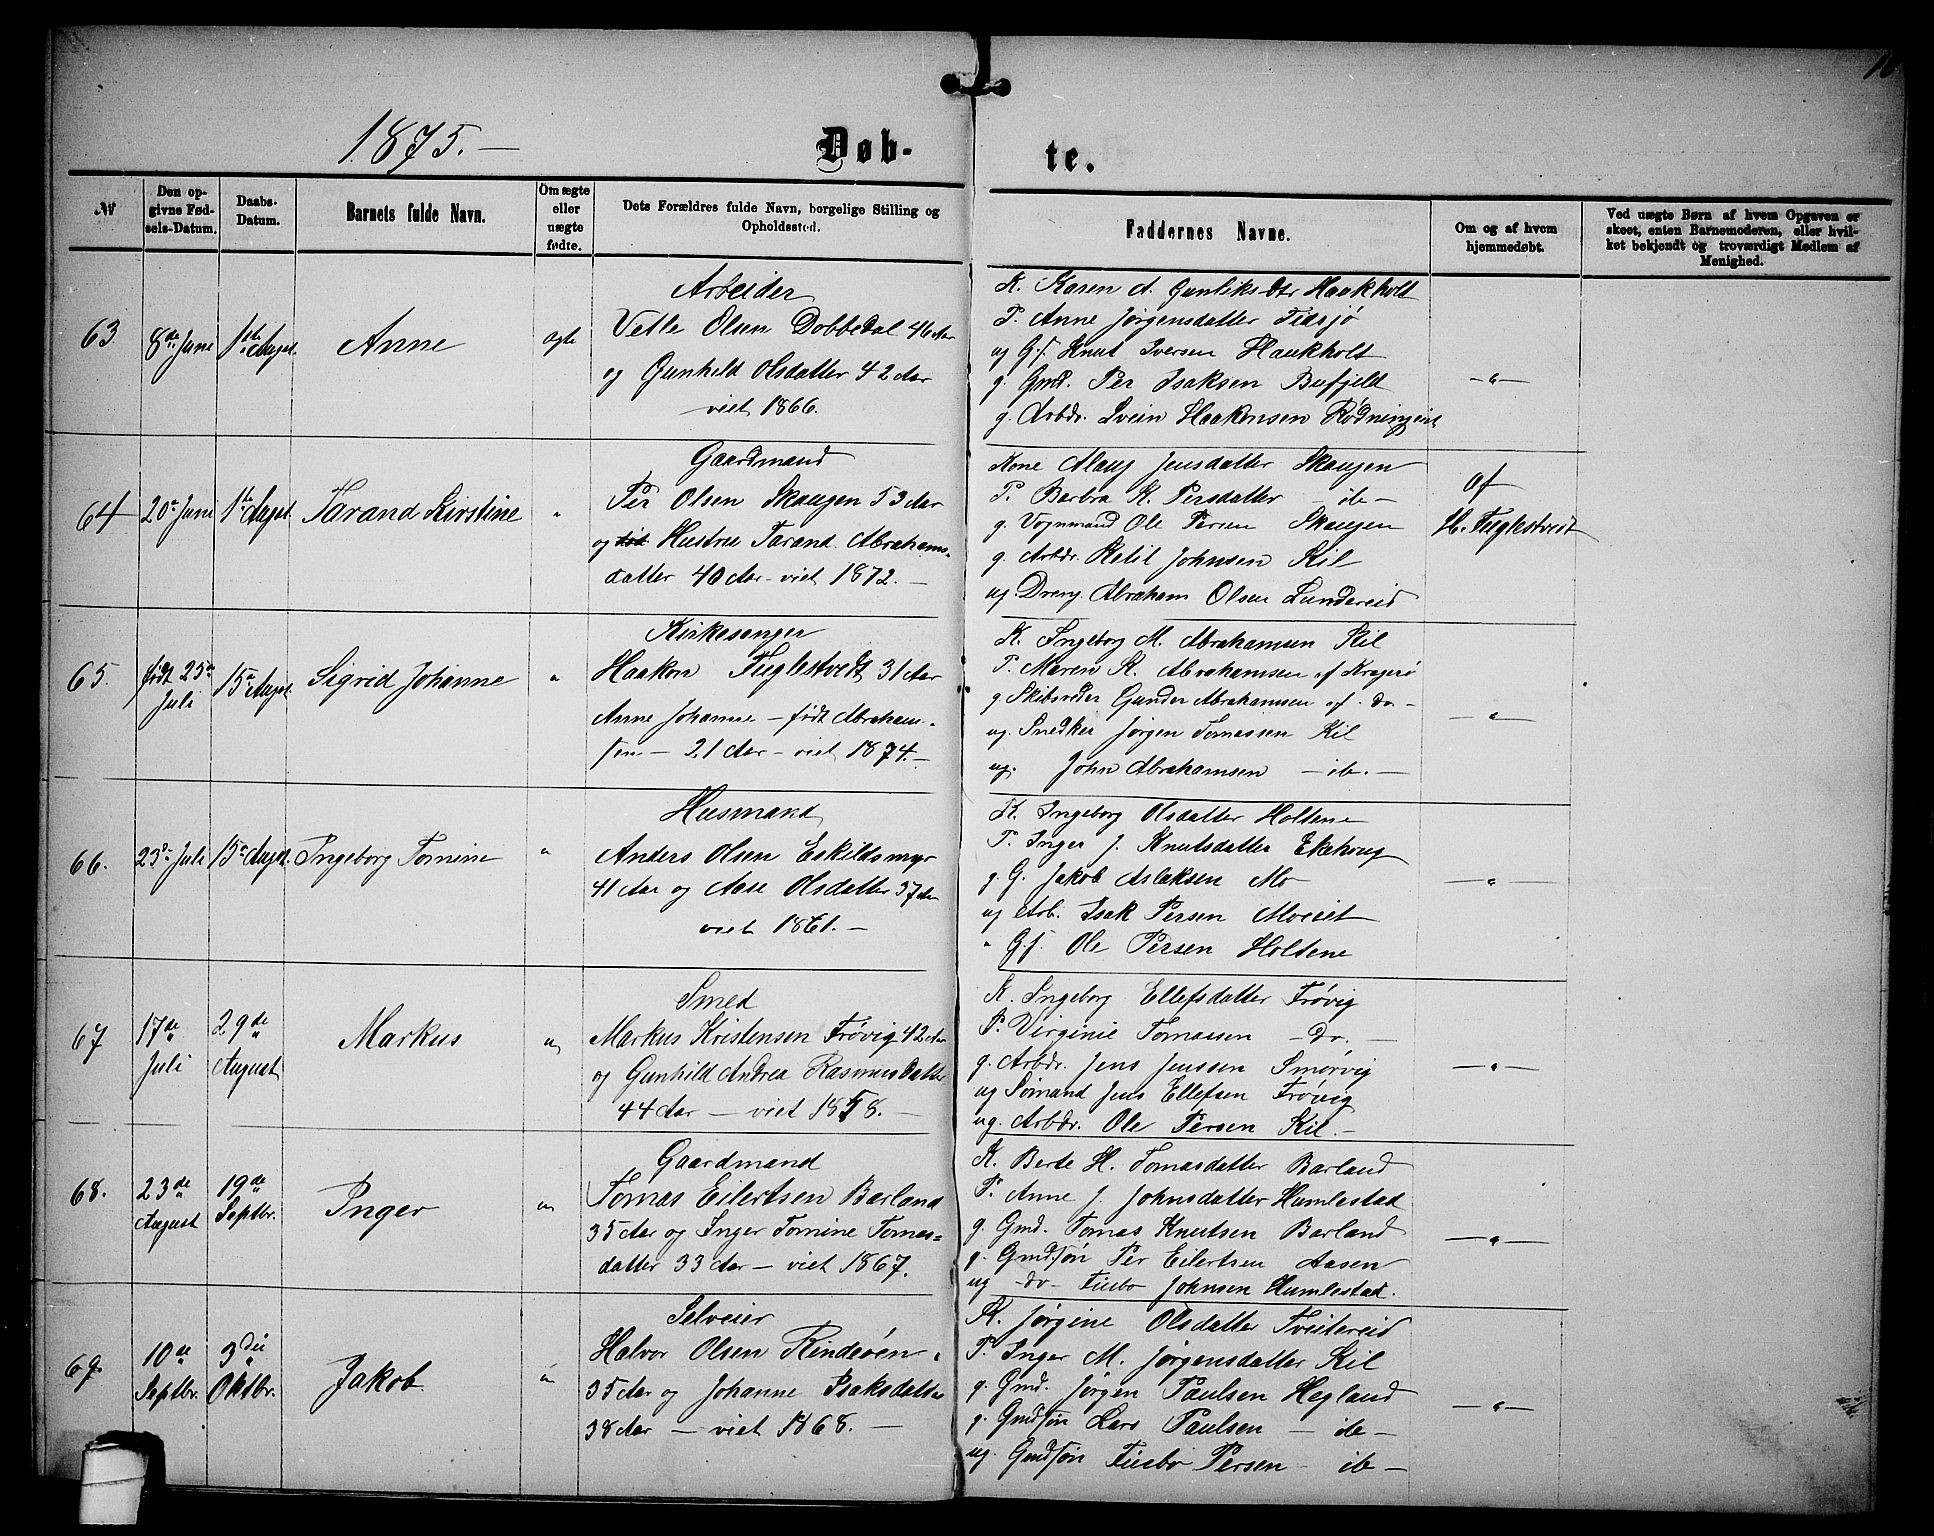 1875.—
Døb-
te.
№
Den op-
givne Fød-
sels-Datum.
Daabs-
Datum.
Barnets fulde Navn.
Om ægte
eller
uægte
fødte.
Dets Forældres fulde Navn, borgelige Stilling og
Opholdssted.
Faddernes Navne.
Om og af hvem
hjemmedøbt.
Ved uægte Børn af hvem Opgaven er
skeet, enten Barnemoderen, eller hvil-
ket bekjendt og troværdigt Medlem af
Menighed.
63
8de Juni
1ste August.
Anne
ægte
Arbeider
Vetle Olsen Dobbedal 46 Aar
og Gunhild Olsdatter 42 Aar
viet 1866.
K. Karen A. Gunliksdtr Haukholt
P. Anne Jørgensdatter Tidsjø
ug G.f. Knut Iversen Haukholt
g. Gmd. Per Isaksen Bufjeld
g. Arbdr. Svein Haakonsen
—"—
64
20de Juni
1ste August.
Tarand Kirstine
"
Gaardmand
Per Olsen Skaugen 53 Aar
og Hustru Tarand Abrahams-
datter 40 Aar – viet 1872.—
Kone Alaug Jensdatter Skaugen
P. Barbra K. Persdatter — ib —
g. Vognmand Ole Persen Skaugen
g. Arbdr. Ketil Johnsen Kil
ug Dreng Abraham Olsen Lundereid
Af
H. Fuglestvedt
65.
født 25de
Juli
15de August.
Sigrid Johanne
"
Kirkesanger
Haakon Fuglestvedt 31 Aar
Anne Johanne — født Abraham-
sen — 21 Aar — viet 1874.—
K. Ingeborg M. Abrahamsen Kil
P. Maren K. Abrahamsen af Kragerø
g Skibsreder Gunder Abrahamsen af do —
ug. Snedker Jørgen Tomassen Kil
ug. John Abrahamsen — ib. —
—"—
66.
23de Juli
15de August.
Ingeborg Tomine
"
Husmand
Anders Olsen Eskildsmyr
41 Aar og Aase Olsdatter 37 Aar
viet 1861.—
K. Ingeborg Olsdatter Holtene
P. Inger J. Knutsdatter Ekehoug
g. G. Jakob Aslaksen Mo
ug Arb. Isak Persen Moeiet
" G.f. Ole Persen Holtene
—"—
67
17de
Juli
29de
August
Markus
"
Smed
Markus Kristensen Frøvig 42 Aar
og Gunhild Andrea Rasmusdatter
44 Aar — viet 1858.—
K. Ingeborg Ellefsdatter Frøvig
P. Virginie Tomassen — Do. —
g. Arbdr. Jens Jenssen Smørvig
ug Sømand Jens Ellefsen Frøvig
ug. Arbdr. Ole Persen Kil.—
—"—
68.
23de
August
19de
Septbr.
Inger
"
Gaardmand
Tomas Eilertsen Barland
35 Aar og Inger Tomine Tomas=
datter 33 Aar — viet 1867.
K. Berte H. Tomasdatter Barland
P. Anne J. Johnsdatter Humlestad
g. Gmd. Tomas Knutsen Barland
g. Gmdsøn Per Eilertsen Aasen
ug — do — Johnsen Humlestad.
—"—
69.
10de
Septbr.
3die
Oktbr.
Jakob
"
Selveier
Halvor Olsen Rindeøen
35 Aar og Johanne Isaksdatter
38 Aar — viet 1868. —
K. Jørgine Olsdatter Tveitereid
P. Inger M. Jørgensdatter Kil
g. Gmd. Jørgen Paulsen Hegland
g. Gmdsøn Lars Paulsen — ib —
ug. Gmdsøn Persen — ib —
—"—